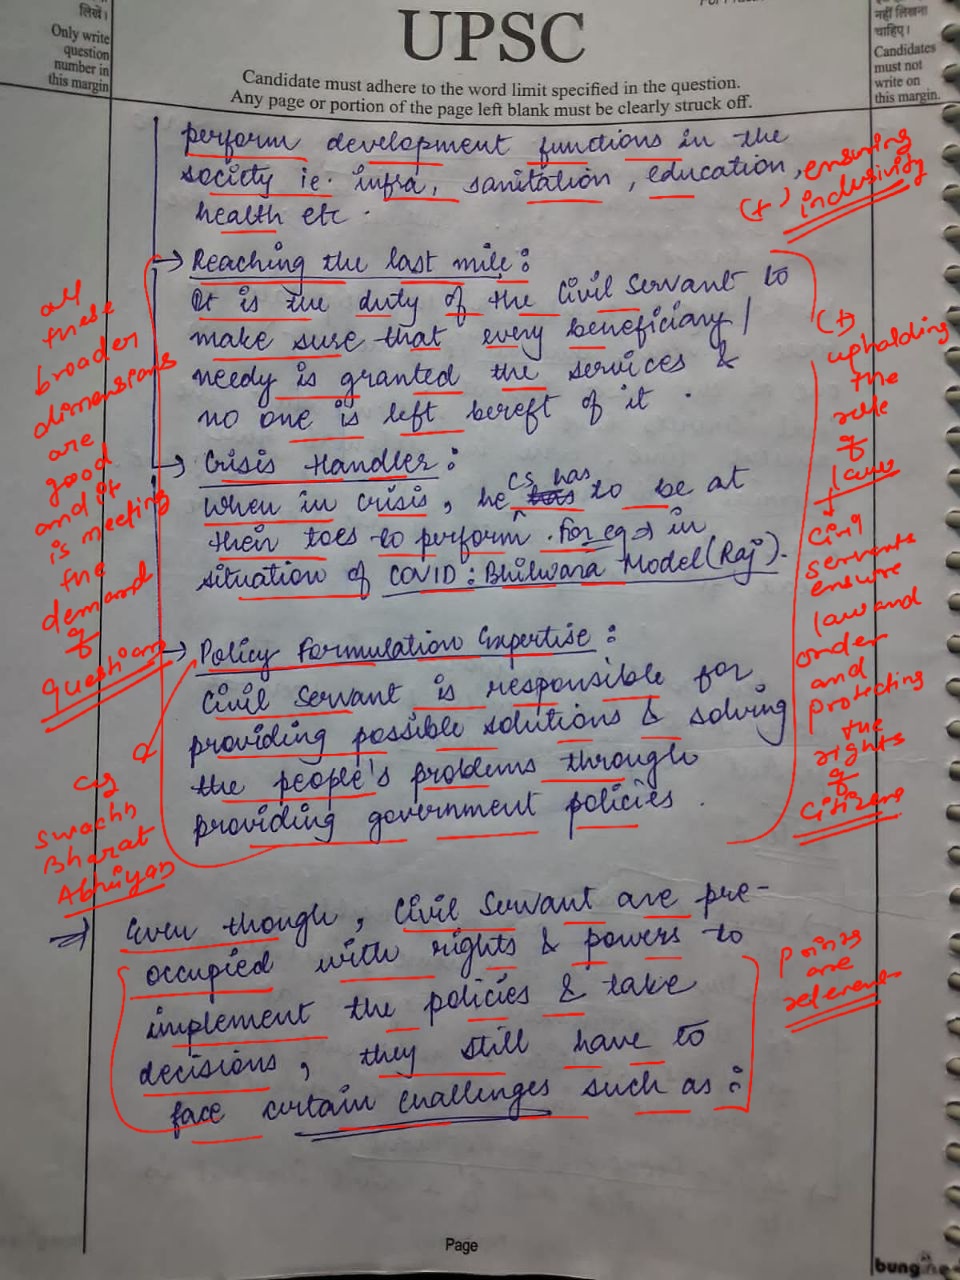 लिखें।
Only write
question
number in
this margin
UPSC
Candidate must adhere to the word limit specified in the question.
Any page or portion of the page left blank must be clearly struck off.
नहीं लिखना
चाहिए।
Candidates
must not
write on
this margin.
perform development functions in the
society ie. infra, sanitation, education,
health etc.
(+) ensuring
inclusivity
→ Reaching the last mile:
It is the duty of the Civil Servant to
make sure that every beneficiary/
needy is granted the services &
no one is left bereft of it.
→ Crisis Handler:
When in crisis, he CS has to be at
their toes to perform. For eg → in
situation of COVID: Bhilwara Model (Raj).
→ Policy Formulation Expertise:
Civil Servant is responsible for
providing possible solutions & solving
the people's problems through
providing government policies.
all
these
broader
dimensions
are
good
and it
is meeting
the
demand
of
question
eg
Swachh
Bharat
Abhiyan
(+)
upholding
the
rule
of
law
+
civil
servants
ensure
law and
order
and
protecting
the
rights
of
citizens
⇒ Even though, Civil Servant are pre-
occupied with rights & powers to
implement the policies & take
decisions, they still have to
face certain challenges such as:
points
are
relevant
Page